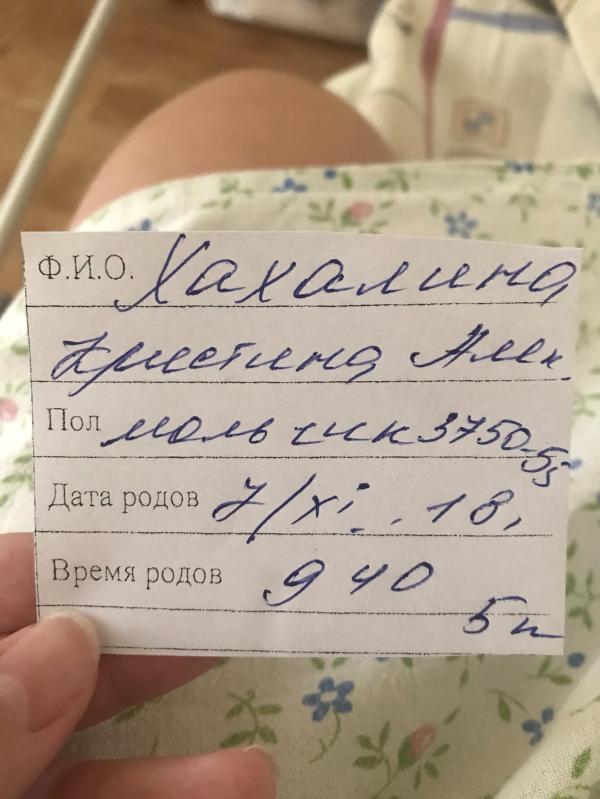 Ф.И.О. Хахалина
Кристина Алек.
Пол мальчик 3750-55
Дата родов 7/XI. 18.
Время родов 9 40
5п